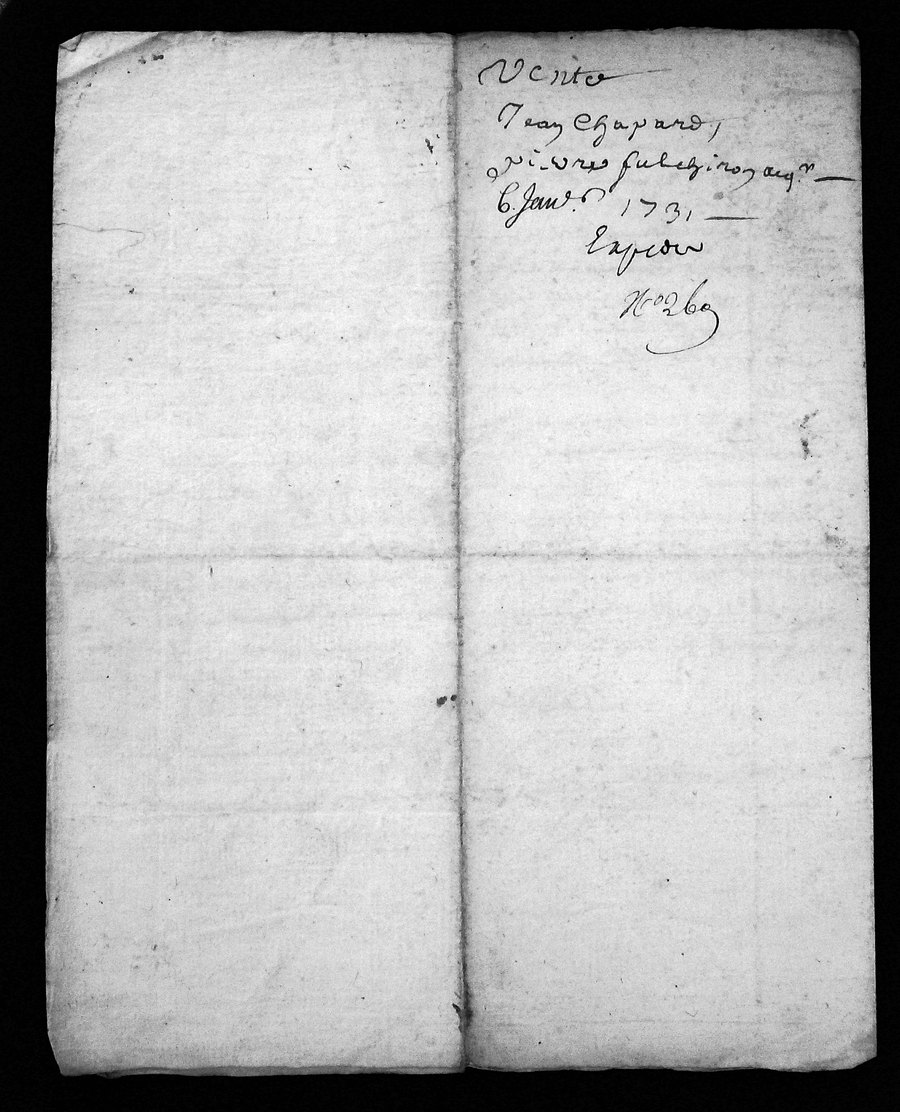 Vente
Jean Chapard,
pierre fulchiron acq.r
6. Janv.r 1731
No 260